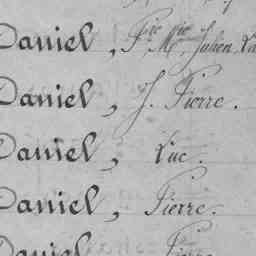 Daniel, Pre Mie Julien
Daniel, J. Pierre.
Daniel, Luc.
Daniel, Pierre.
Daniel, Pierre